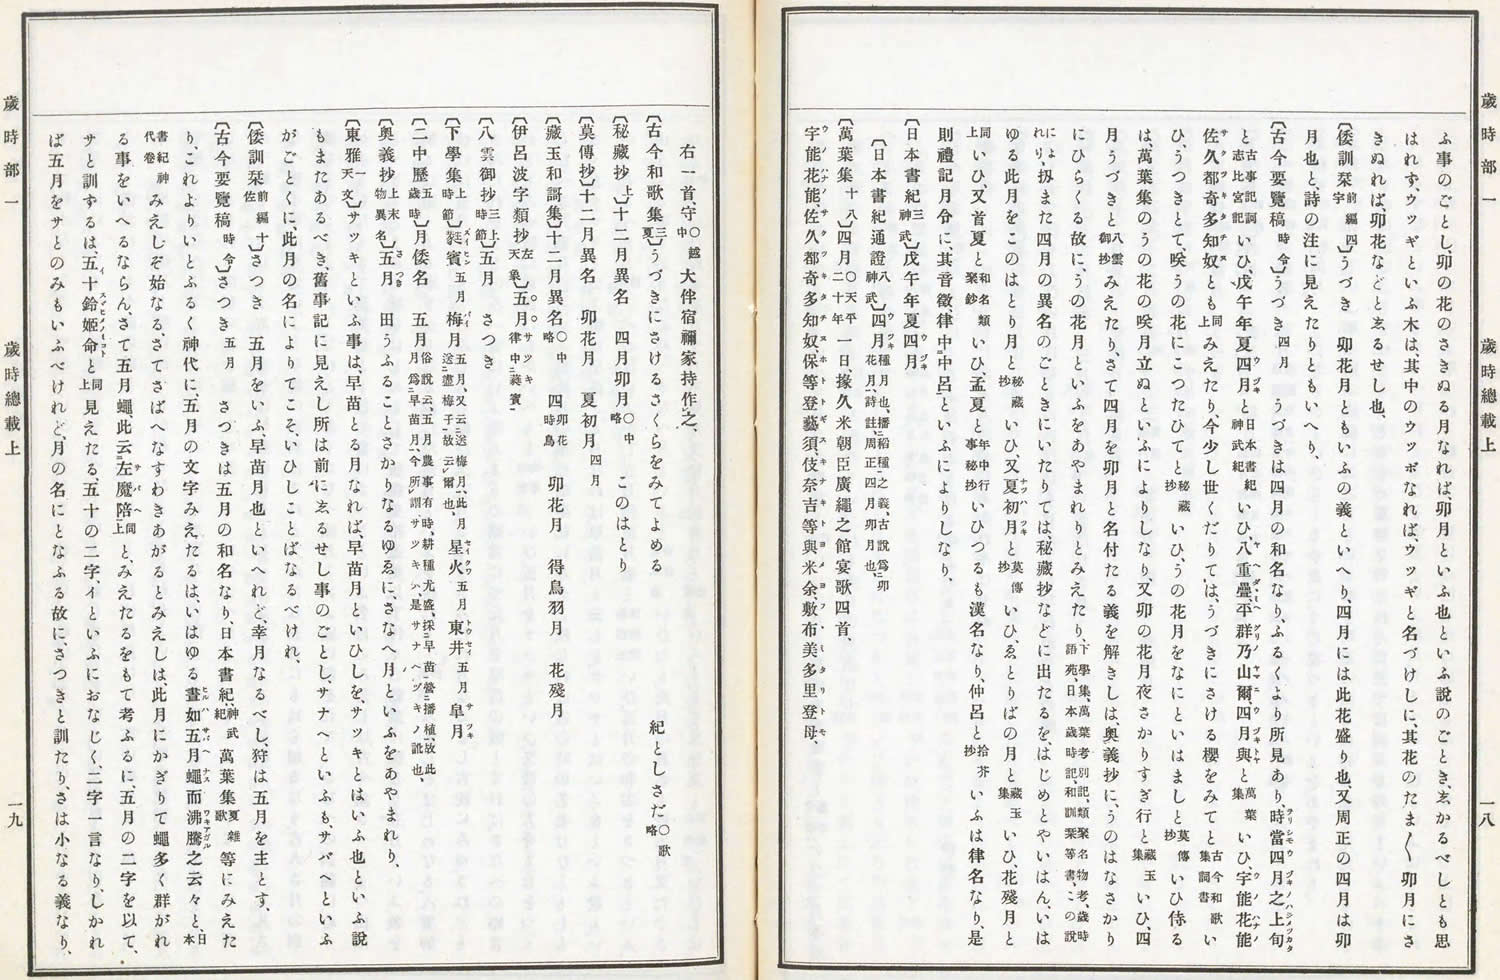 歲時部一　歲時總載上　一八
ふ事のごとし、卯の花のさきぬる月なれば、卯月といふ也といふ說のごとき、ゑかるべしとも思
はれず、ウツギといふ木は、其中のウツボなれば、ウツギと名づけしに、其花のたま〳〵卯月にさ
きぬれば、卯花などとゑるせし也、
〔倭訓栞前編四宇〕うづき　卯花月ともいふの義といへり、四月には此花盛り也、又周正の四月は卯
月也と、詩の注に見えたりともいへり、
〔古今要覽稿時令〕うづき四月　うづきは四月の和名なり、ふるくより所見あり、時當四月之上旬
と古事記詞志比宮記いひ、戊午年夏四月と日本書紀神武紀いひ、八重疊平群乃山爾四月與と萬葉集いひ、宇能花能
佐久都奇多知奴とも同上みえたり、今少し世くだりては、うづきにさける櫻をみてと古今和歌集詞書い
ひ、うつきとて、咲うの花にこつたひてと秘藏抄いひ、うの花月をなにといはましと莫傳抄いひ侍る
は、萬葉集のうの花の咲月立ぬといふによりしなり、又卯の花月夜さかりすぎ行と藏玉集いひ、四
月うづきと八雲御抄みえたり、さて四月を卯月と名付たる義を解きしは、奧義抄に、うのはなさかり
にひらくる故に、うの花月といふをあやまれりとみえたり、下學集、萬葉考別記、類聚名物考、歲時語苑、日本歲時記、和訓栞等書、この說
によれり、扨また四月の異名のごときにいたりては、秘藏抄などに出たるを、はじめとやいはん、いは
ゆる此月をこのはとり月と秘藏抄いひ、又夏初月と莫傳抄いひ、ゑとりばの月と藏玉集いひ、花殘月と
同上いひ、又首夏と和名類聚鈔いひ、孟夏と年中行事秘抄いひつるも漢名なり、仲呂と拾芥抄いふは律名なり、是
則禮記月令に、其音徵律中中呂といふによりしなり、
〔日本書紀三神武〕戊午年夏四月
〔日本書紀通證八神武〕四月種月也、播稻種之義、古說爲卯花月、詩註周正四月卯月也、
〔萬葉集十八〕四月○天平二十年一日、掾久米朝臣廣繩之館宴歌四首、
宇能花能、佐久都奇多知奴、保等登藝須、伎奈吉等與米余、敷布美多里登母、
右一首、守○越中大伴宿禰家持作之、
〔古今和歌集三夏〕うづきにさけるさくらをみてよめる　紀としさだ○歌略
〔秘藏抄上〕十二月異名　四月卯月○中略　このはとり
〔莫傳抄〕十二月異名　卯花月　夏初月四月
〔藏玉和謌集〕十二月異名○中略　四卯花時鳥　卯花月　得鳥羽月　花殘月
〔八雲御抄三上時節〕五月　さつき
〔伊呂波字類抄左天象〕五月サツキ律中蕤賓
〔下學集上時節〕蕤賓五月　梅月五月、又云送梅月、此月送憲梅子、故云爾也、　星火五月　東井五月　皐月
〔二中歷五歲時〕月倭名　五月俗說云、五月農事有時、耕種尤盛、採早苗營播植、故此月爲早苗月、今所謂サツキ、是サナヘヅキノ訛也、
〔奧義抄上末物異名〕五月さつき　田うふることさかりなるゆゑに、さなへ月といふをあやまれり、
〔東雅一天文〕サツキといふ事は、早苗とる月なれば、早苗月といひしを、サツキとはいふ也といふ說
もまたあるべき、舊事記に見えし所は前にゑるせし事のごとし、サナへといふも、サバへといふ
がごとくに、此月の名によりてこそ、いひしことばなるべけれ、
〔倭訓栞前編十佐〕さつき　五月をいふ早苗月也といへれど、幸月なるべし、狩は五月を主とす、
〔古今要覽稿時令〕さつき五月　さつきは五月の和名なり、日本書紀、神武紀萬葉集夏雜歌等にみえた
り、これよりいとふるく神代に、五月の文字みえたるは、いはゆる晝如五月蠅而沸騰之云々と、日本
書紀神代卷みえしぞ始なる、さてさばへなすわきあがるとみえしは、此月にかぎりて蠅多く群がれ
る事をいへるならん、さて五月蠅、此云左魔陪同上と、みえたるをもて考ふるに、五月の二字を以て、
サと訓ずるは、五十鈴姬命と同上見えたる、五十の二字、イといふにおなじく二字一言なり、しかれ
ば五月をサとのみもいふべけれど、月の名にとなふる故に、さつきと訓たり、さは小なる義なり、
歲時部一　歲時總載上　一九